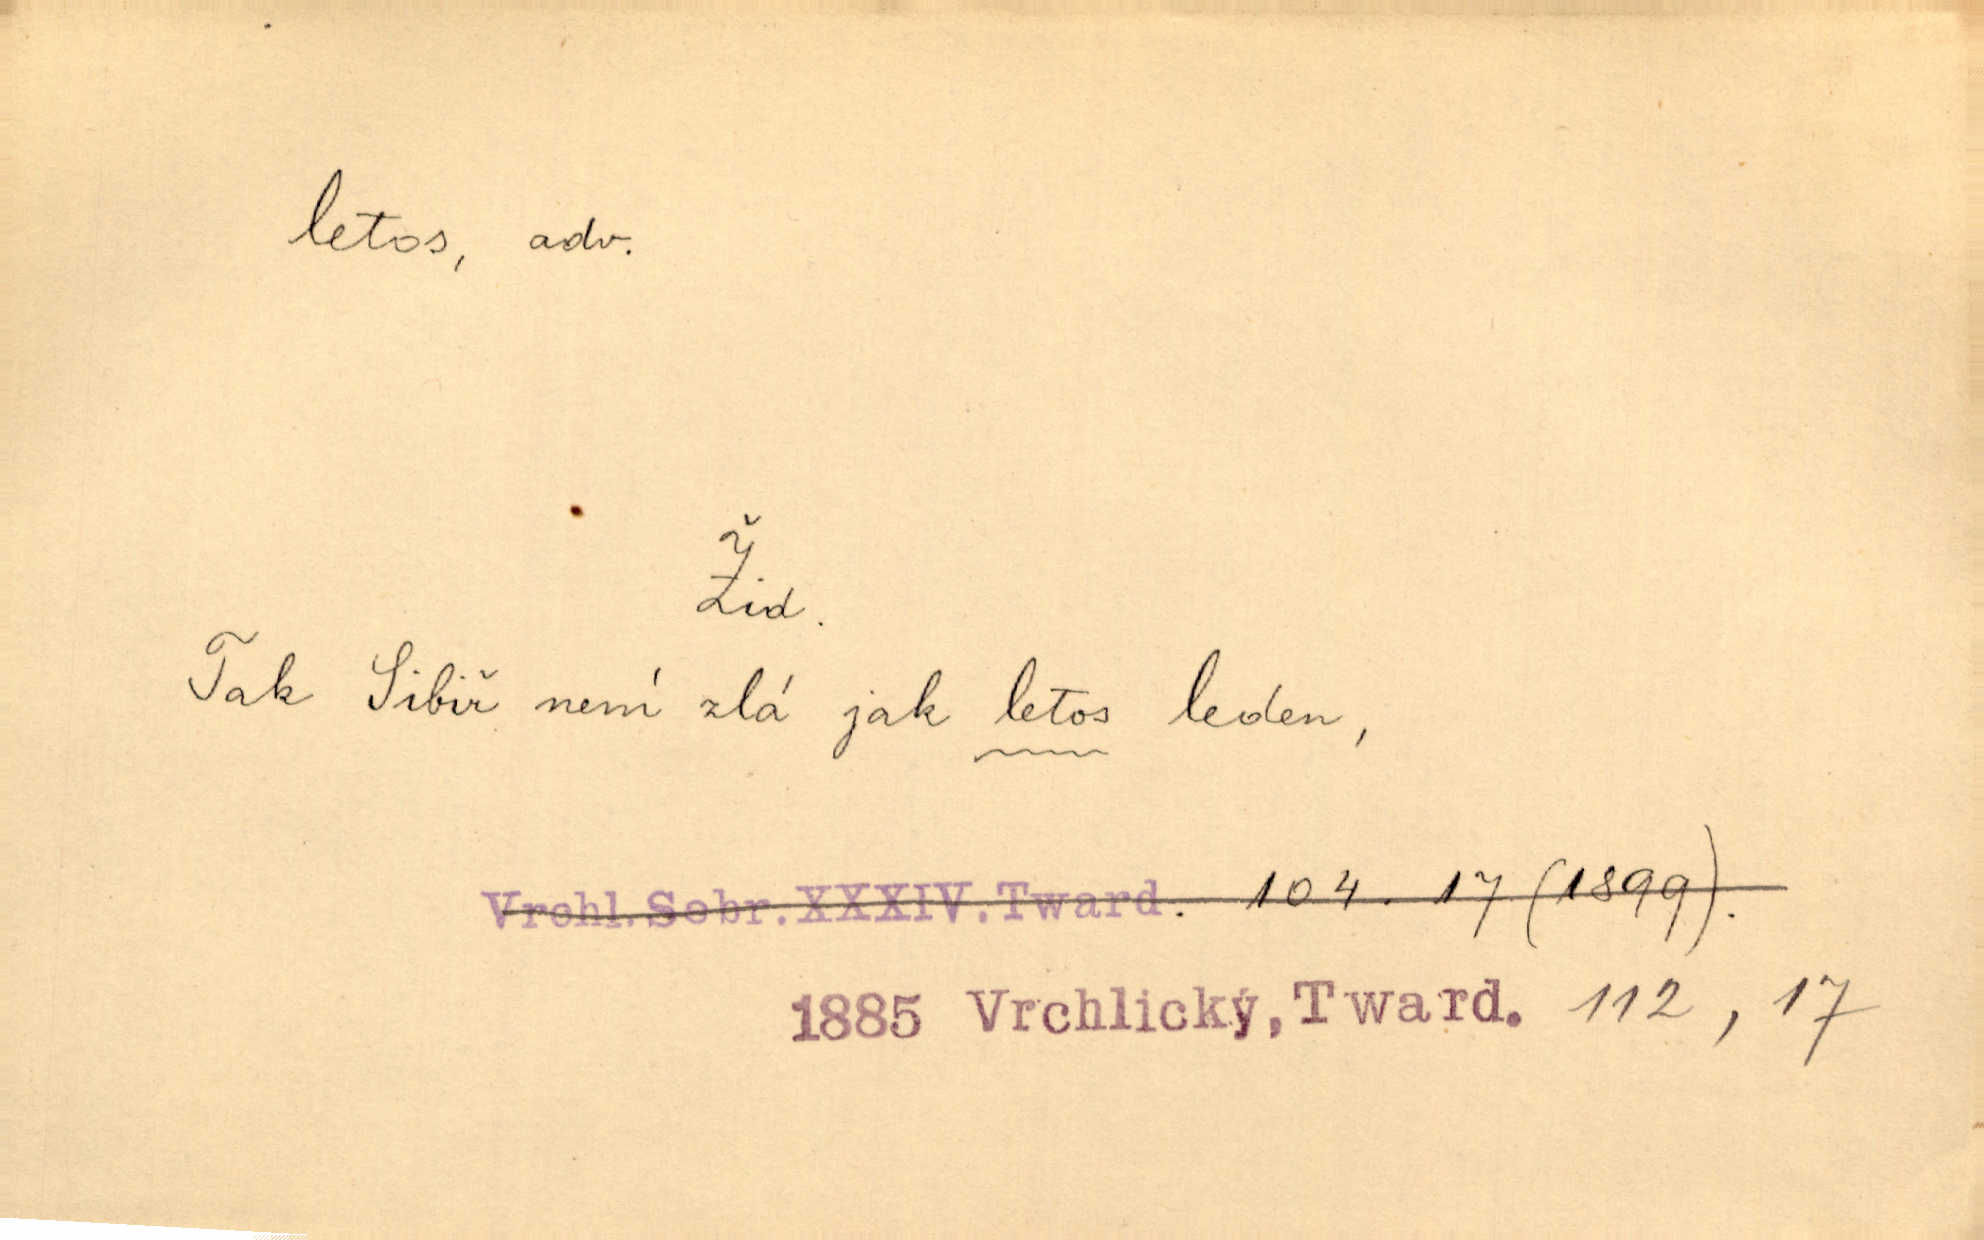 letos, adv.
Žid.
Tak Sibiř není zlá jak letos leden,
Vrchl. Sebr. XXXIV. Tward. 104. 17 (1899).
1885 Vrchlický, Tward. 112, 17